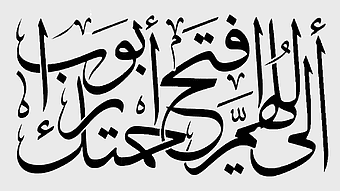 أللهمَّ افتح لى أبواب رحمتك